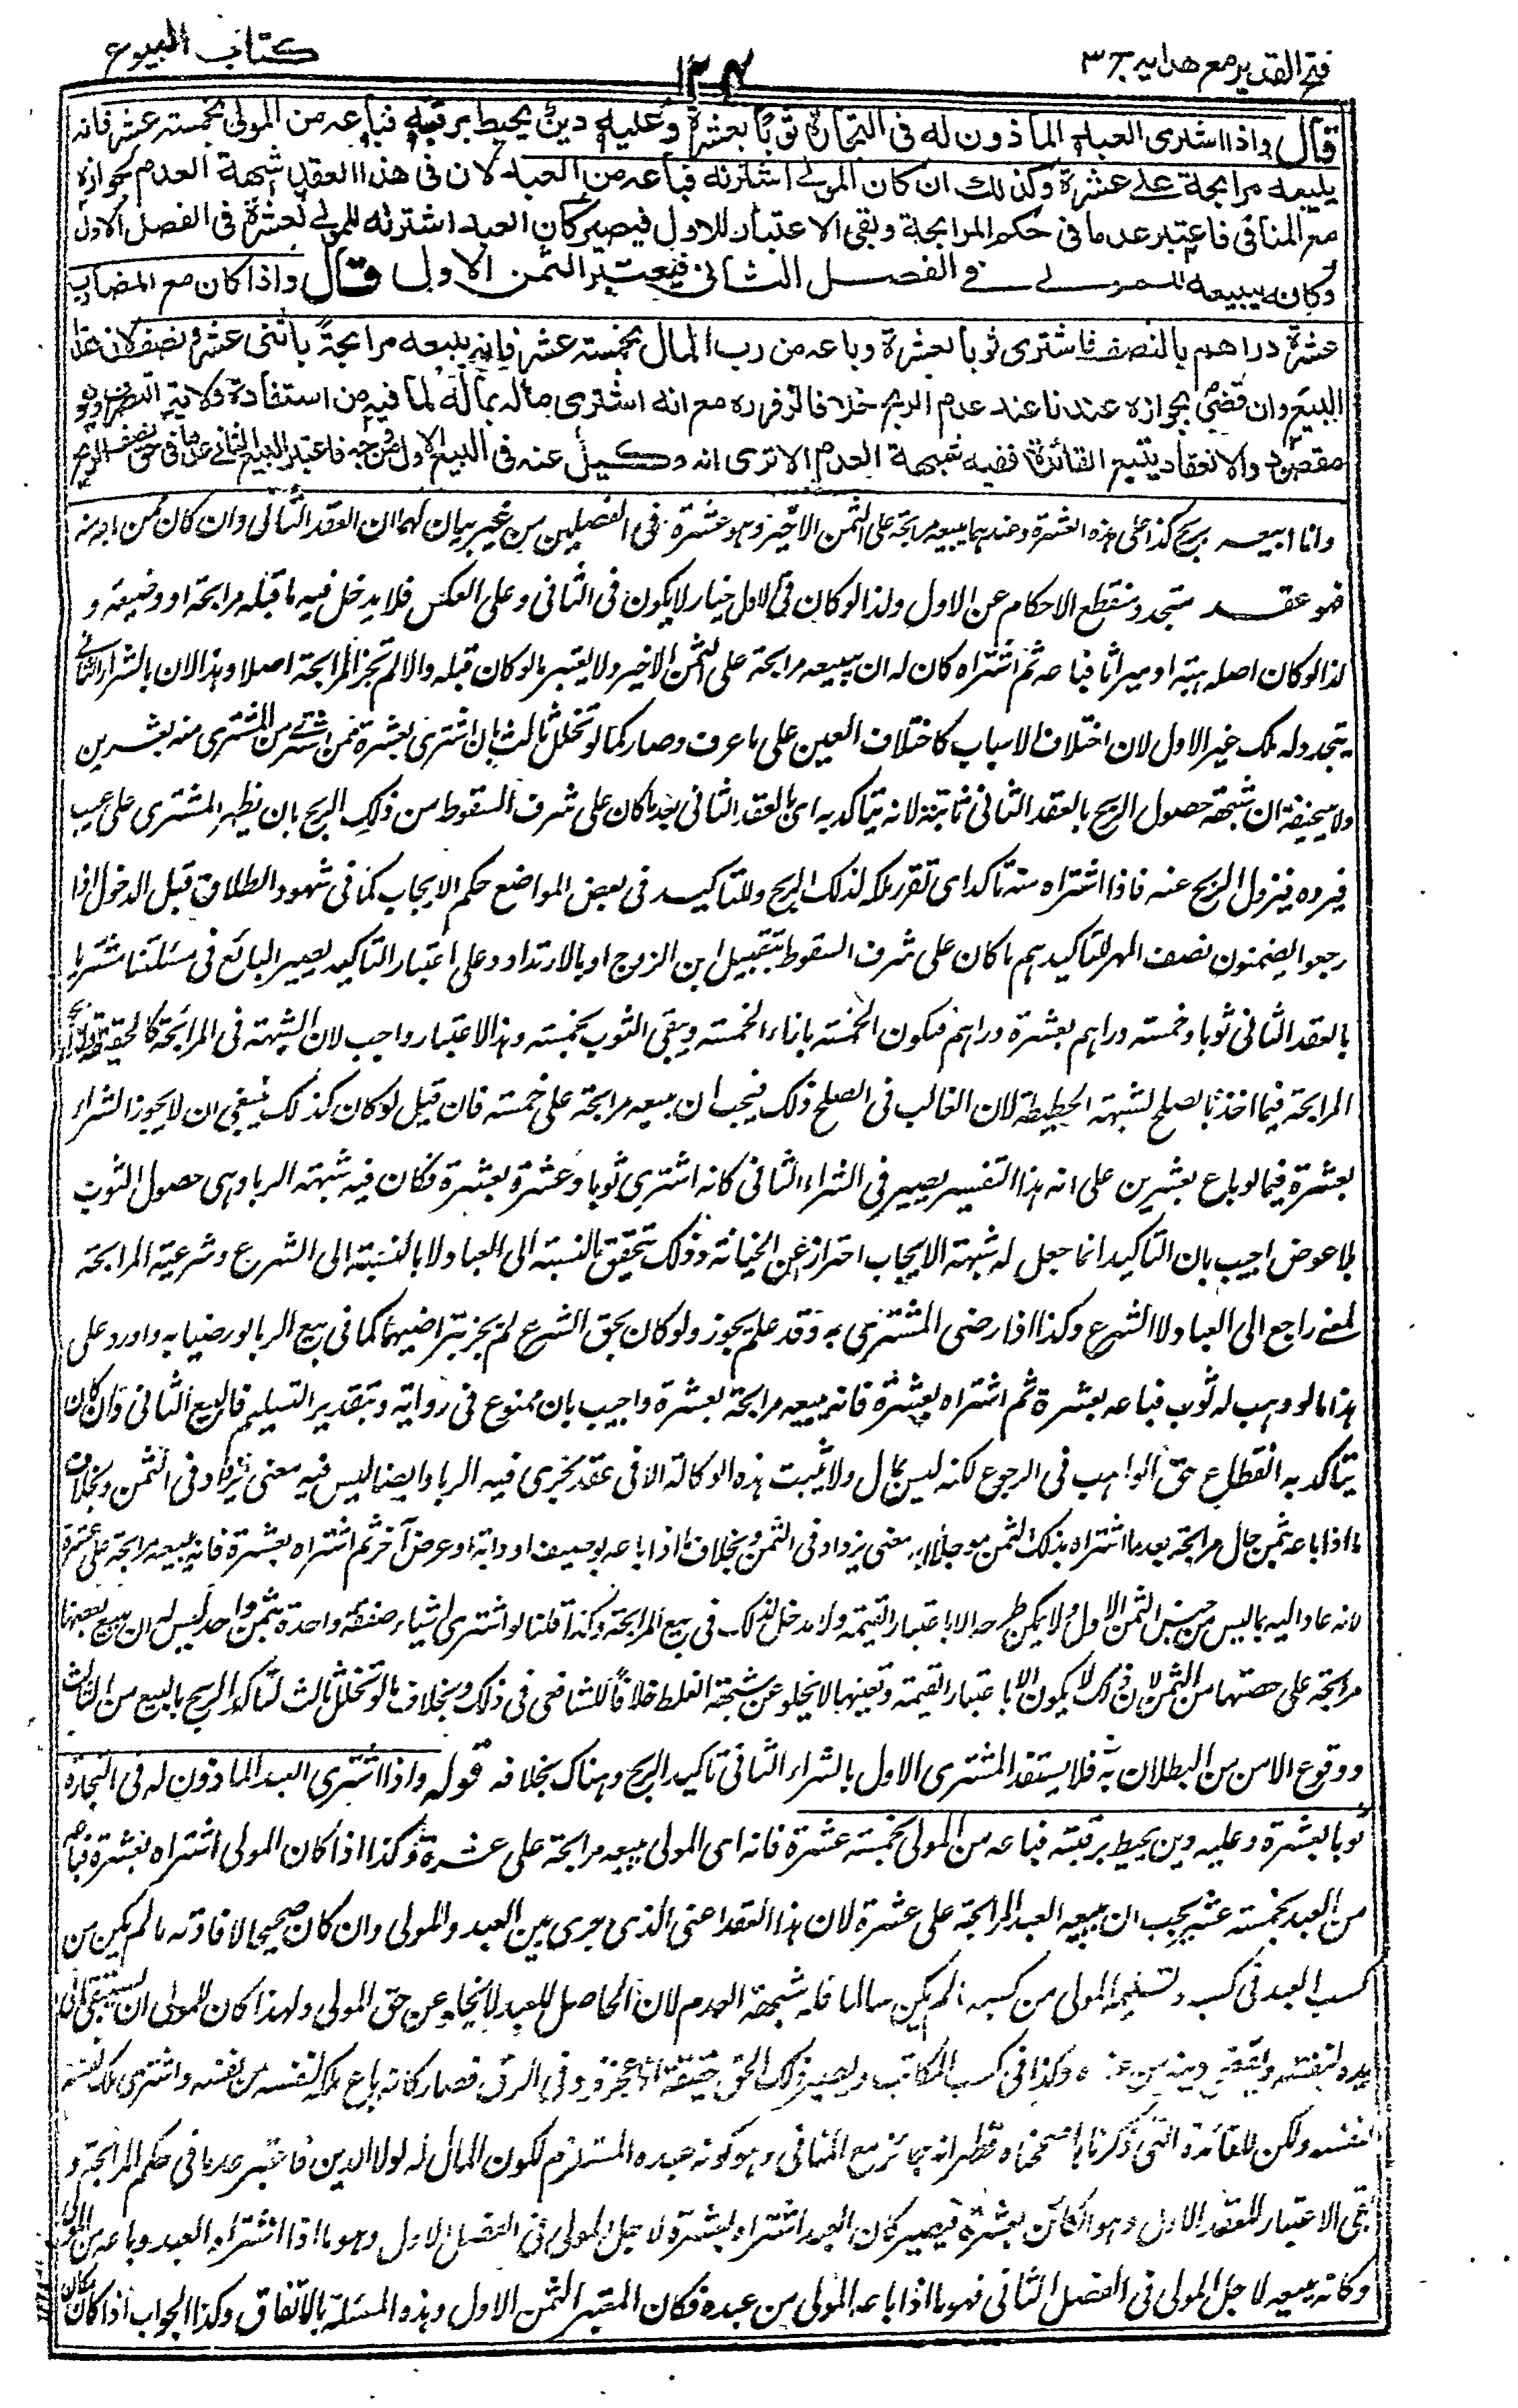 فتح القدير مع هدايه ج ٣
١٢٤
كتاب البيوع
قال واذا اشترى العبد الماذون له فى التجارة ثوبا بعشرة وعليه دين يحيط برقبته فباعه من المولى بخمسته عشر فانه
يبيعه مرابحة على عشرة وكذلك ان كان المولى اشتراه فباعه من العبد لان فى هذا العقد شبهة العدم بجوازه
مع المنافى فاعتبر عدما فى حكم المرابحة وبقى الاعتبار للاول فيصير كان العبد اشتراه للمولى بعشرة فى الفصل الاول
وكانه يبيعه للمولى فى الفصل الثانى فيعتبر الثمن الاول قال واذا كان مع المضارب
عشرة دراهم بالنصف فاشترى ثوبا بعشرة وباعه من رب المال بخمسته عشر فانه يبيعه مرابحة باثنى عشر ونصف لان هذا
البيع وان قضى بجوازه عندنا عند عدم الربح خلافا لزفر ره مع انه اشترى ماله بماله لما فيه من استفادة ولاية التصرف وهو
مقصود والانعقاد يتبع الفائدة ففيه شبهة العدم الا ترى انه وكيل عنه فى البيع الاول من وجه فاعتبر البيع الثانى عدما فى حق نصف الربح
وانا ابيعه بربح كذا على هذه العشرة وعندهما يبيعه مرابحة على الثمن الاخير وهو عشرة فى الفصلين من غير بيان لهما ان العقد الثانى وان كان ممن اجر منه
فهو عقد متجدد منقطع الاحكام عن الاول ولذا لو كان فى الاول خيار لا يكون فى الثانى وعلى العكس فلا يدخل فيه ما قبله مرابحة او وضيعة و
لذا لو كان اصله هبة او ميراثا فباعه ثم اشتراه كان له ان يبيعه مرابحة على الثمن الاخير ولا يعتبر ما لو كان قبله والا لم تجز المرابحة اصلا وهذا لان بالشراء الثانى
يتجدد له ملك غير الاول لان اختلاف الاسباب كاختلاف العين على ما عرف وصار كما لو تخلل ثالث بان اشترى بعشرة ممن اشترى من المشترى منه بعشرين
ولابيحنيفة ان شبهة حصول الربح بالعقد الثانى ثابتة لانه يتاكد به اى بالعقد الثانى بعد ما كان على شرف السقوط من ذلك الربح بان يظهر المشترى على عيب
فيرده فيزول الربح عنه فاذا اشتراه منه تاكد اى تقرر ملكه لذلك الربح وللتاكيد فى بعض المواضع حكم الايجاب كما فى شهود الطلاق قبل الدخول اذا
رجعوا يضمنون نصف المهر لتاكيدهم ما كان على شرف السقوط بتقبيل ابن الزوج او بالارتداد وعلى اعتبار التاكيد يصير البائع فى مسئلتنا مشتريا
بالعقد الثانى ثوبا وخمسته دراهم بعشرة دراهم فيكون الخمسته بازاء الخمسته ويبقى الثوب بخمسته وهذا الاعتبار واجب لان الشبهة فى المرابحة كالحقيقة ولذا لم تجز
المرابحة فيما اخذ بالصلح لشبهة الحطيطة لان الغالب فى الصلح ذلك فيجب ان يبيعه مرابحة على خمسته فان قيل لو كان كذلك ينبغى ان لا يجوز الشراء
بعشرة فيما لو باع بعشرين على انه بهذا التفسير يصير فى الشراء الثانى كانه اشترى ثوبا وعشرة بعشرة فكان فيه شبهة الربا وهى حصول الثوب
بلا عوض اجيب بان التاكيد انما جعل له شبهة الايجاب احترازا عن الخيانة وذلك يتحقق بالنسبة الى العباد لا بالنسبة الى الشرع وشرعية المرابحة
لمعنى راجع الى العباد لا الشرع وكذا اذا رضى المشترى به وقد علم يجوز ولو كان بحق الشرع لم يجز بتراضيهما كما فى بيع الربا لو رضيا به واورد على
هذا ما لو وهب له ثوب فباعه بعشرة ثم اشتراه بعشرة فانه يبيعه مرابحة بعشرة واجيب بان ممنوع فى رواية وبتقدير التسليم فالبيع الثانى وان كان
يتاكد به انقطاع حق الواهب فى الرجوع لكنه ليس بمال ولا يثبت هذه الوكالة الا فى عقد يجرى فيه الربا وايضا ليس فيه معنى يزداد فى الثمن وبخلاف
ما اذا باعه بثمن حال مرابحة بعد ما اشتراه بذلك الثمن موجلا لانه معنى يزداد فى الثمن وبخلاف ما اذا باعه بوصيف او دابة او عرض آخر ثم اشتراه بعشرة فانه يبيعه مرابحة على عشرة
لانه عاد اليه بما ليس من جنس الثمن الاول ولا يمكن طرحه الا باعتبار القيمة ولا مدخل لذلك فى بيع المرابحة وكذا قلنا لو اشترى اشياء صفقة واحدة بثمن واحد ليس له ان يبيع بعضها
مرابحة على حصتها من الثمن لان ذلك لا يكون الا باعتبار القيمة وتعينها لا يخلو عن شبهة الغلط خلافا للشافعى فى ذلك وبخلاف ما لو تخلل ثالث لتاكد الربح بالبيع من الثالث
ووقوع الامن من البطلان به فلا يستفد المشترى الاول بالشراء الثانى تاكيد الربح وهناك بخلافه قوله واذا اشترى العبد الماذون له فى التجارة
ثوبا بعشرة وعليه دين يحيط برقبته فباعه من المولى بخمسته عشرة فانه اى المولى يبيعه مرابحة على عشرة وكذا اذا كان المولى اشتراه بعشرة فباعه
من العبد بخمسته عشر يجب ان يبيعه العبد المرابحة على عشرة لان هذا العقد اعنى الذى جرى بين العبد والمولى وان كان صحيحا لافادته ما لم يكن من
كسب العبد فى كسبه وتسليم المولى من كسبه ما لم يكن سالما فله شبهة العدم لان الحاصل للعبد لا يخلو عن حق المولى ولهذا كان للمولى ان يستبقى ما فى
يده لنفسه ويقضى دينه من عنده وكذا فى كسب المكاتب ويصير ذلك الحق حقيقة اذا عجز ورد فى الرق فصار كانه باع ملك نفسه من نفسه واشترى ملك نفسه
لنفسه ولكن للفائدة التى ذكرنا صححناه فظهر انه جائز مع المنافى وهو كونه عبده المستلزم لكون المال له لولا الدين فاعتبر عدما فى حكم المرابحة و
بقى الاعتبار للعقد الاول وهو الكائن بعشرة فيصير كان العبد اشتراه بعشرة لاجل المولى فى الفصل الاول وهو ما اذا اشتراه العبد وباعه من المولى
وكانه يبيعه لاجل المولى فى الفصل الثانى فهو ما اذا باعه المولى من عبده فكان المعتبر الثمن الاول وهذه المسئلة بالاتفاق وكذا الجواب اذا كان